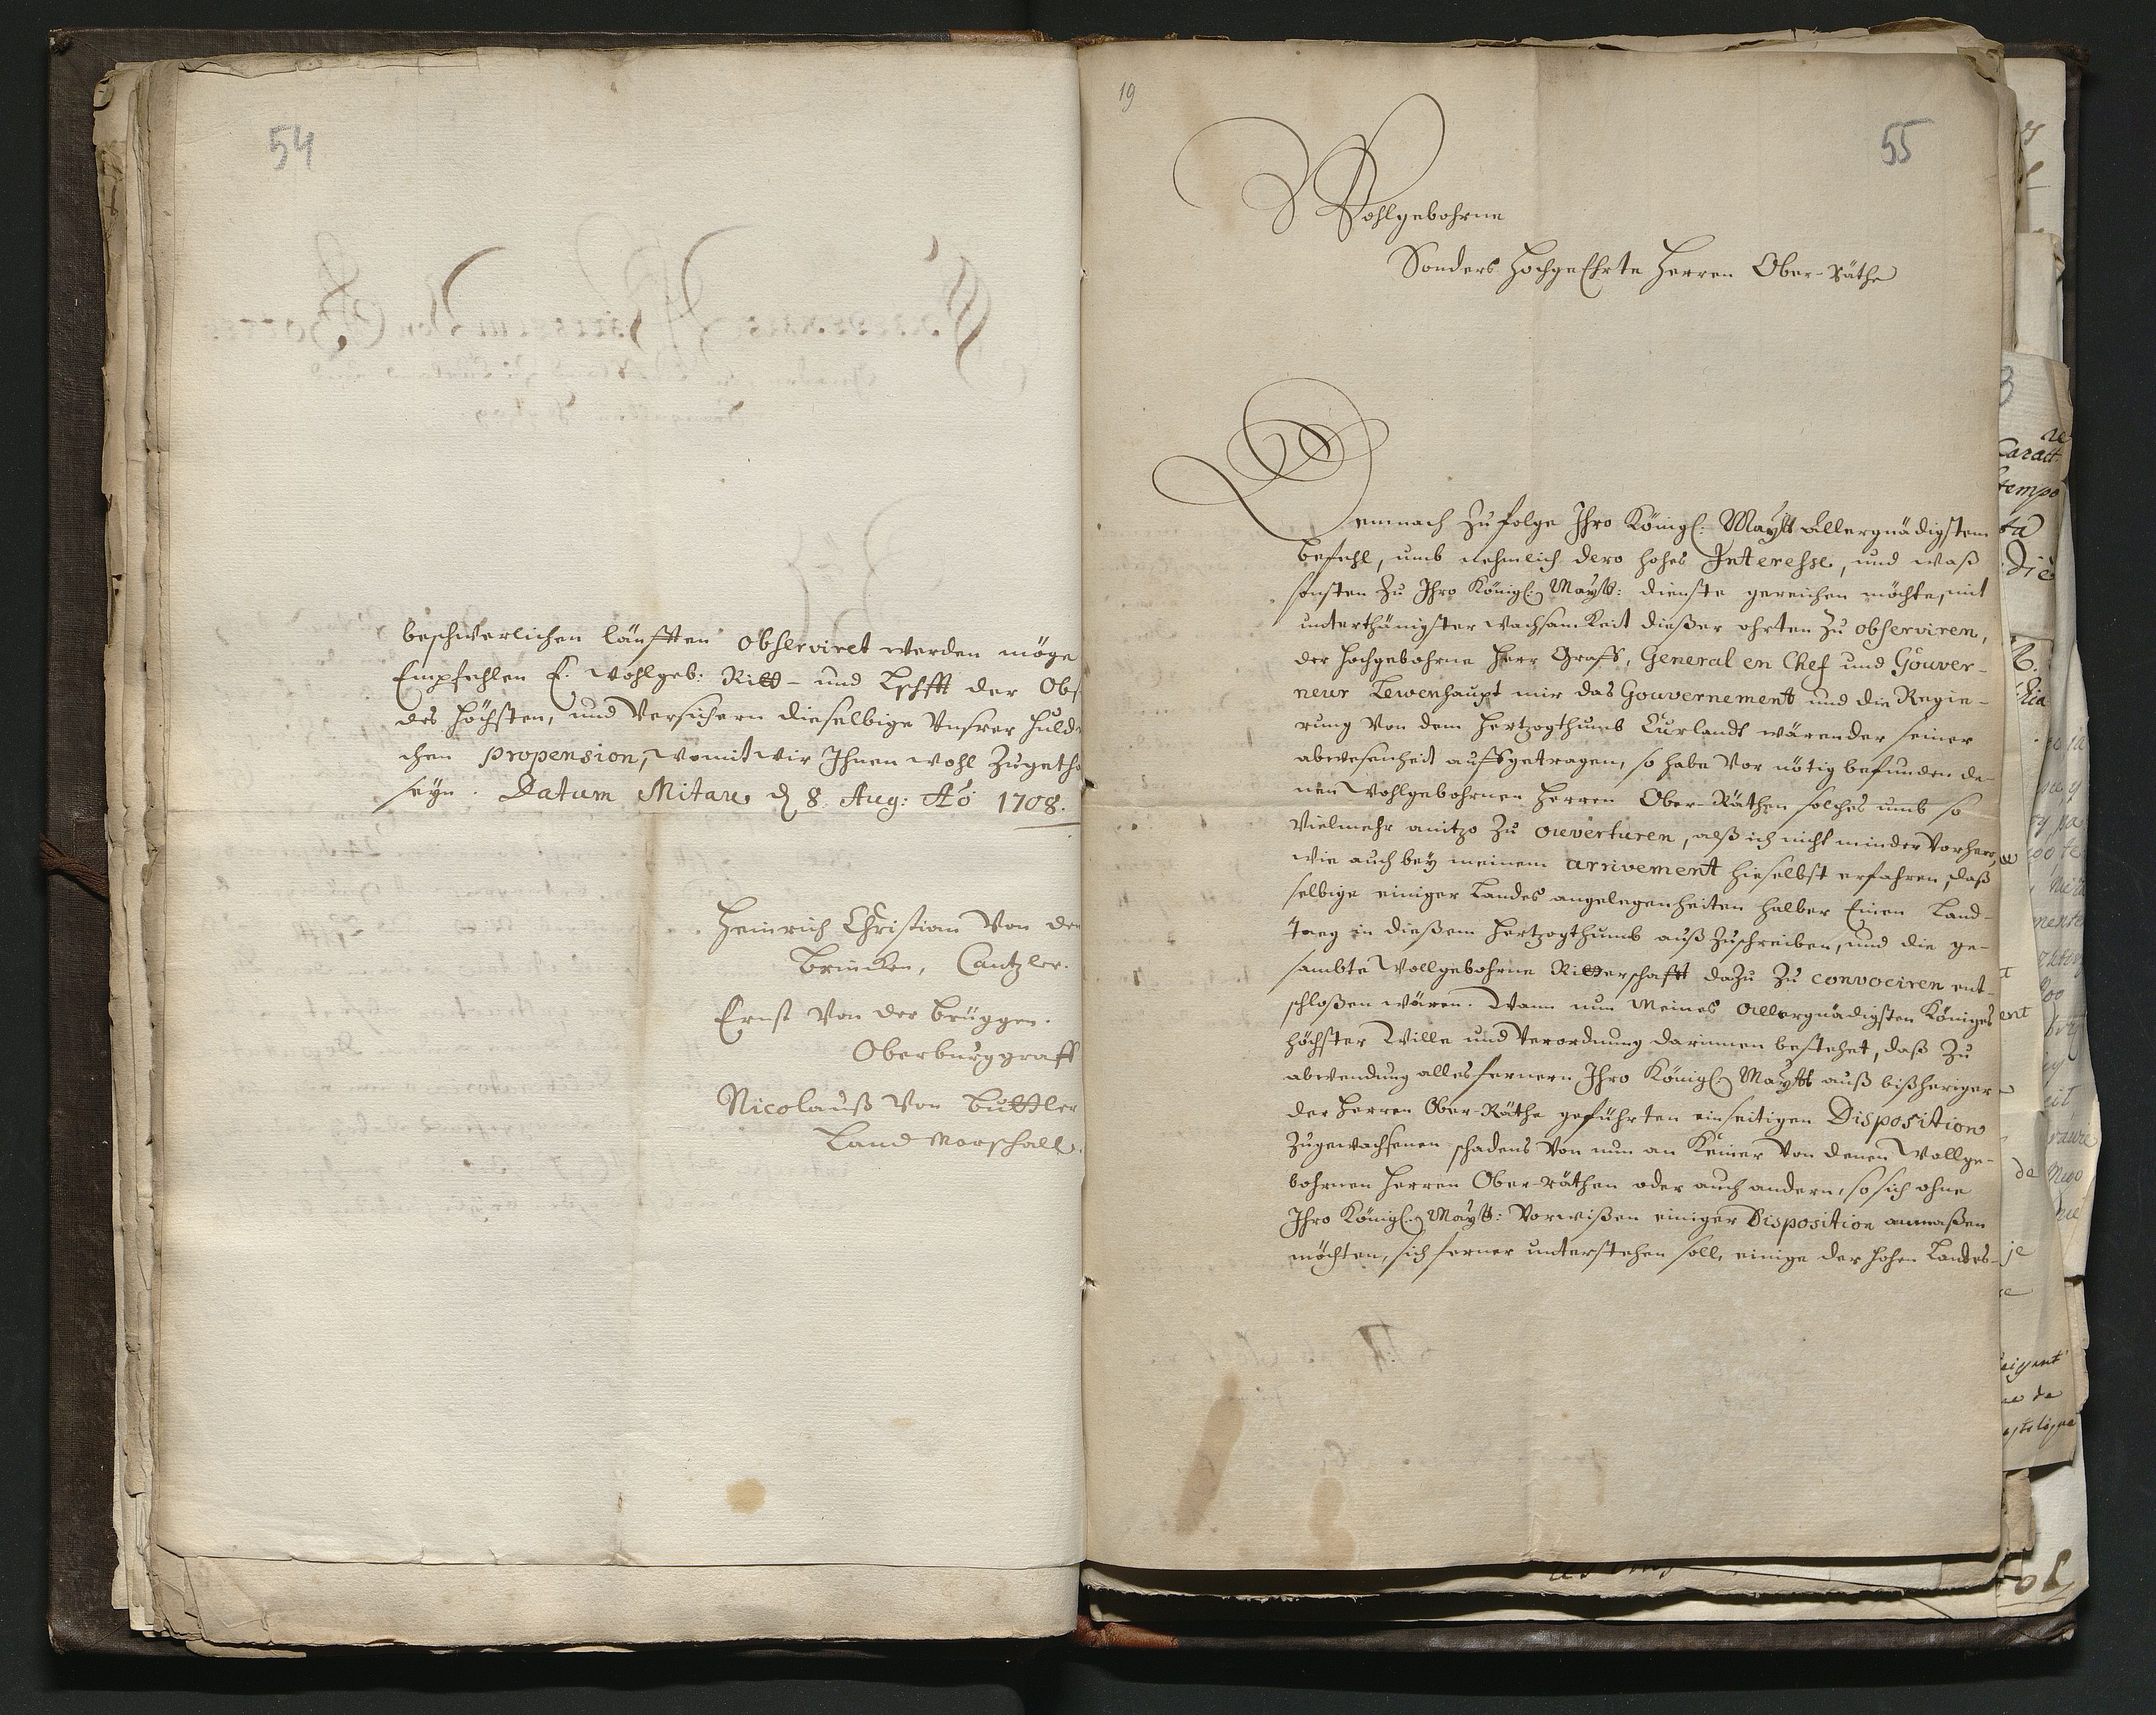 54
beschwerlichen läufften observiret werden möge
Empfehlen E. Wohlgeb: Ritt- und Lschfft der Obs
des Höchsten, und Versichern dieselbige Unsrer huld
chen propension, womit wir Ihnen wohl Zugetha
seyn. Datum Mitau d 8. Aug: Aõ 1708.
Heinrich Christian Von den
Brincken, Cantzler.
Ernst Von der Brüggen.
Oberburggraff
Nicolauß Von Buttler
Land Marschall.
19
55
Wohlgebohrne
Sonders HochgeEhrte Herren Ober-Räthe
Demnach Zufolge Ihro Königl: Maytt allergnädigstem
befehl, umb nehmlich dero hohes Interesse, und waß
sonsten Zu Ihro Königl: Maytt: dienste gereichen möchte, mit
unterthänigster wachsamkeit dießer ohrten Zu observiren,
der Hochgebohrne Herr Graff, General en Chef und Gouver-
neur Lewenhaupt mir das Gouvernement und die Regie-
rung Von dem Hertzogthumb Curlandt wärender seiner
abwesenheit auffgetragen, so habe Vor nötig befunden de-
nen Wohlgebohrnen Herren Ober-Räthen solches umb so
Vielmehr anitzo Zu ouverturen, alß ich nicht minder Vorher,
wie auch bey meinem arrivement hieselbst erfahren, daß
selbige einiger Landes angelegenheiten halber Einen Land-
Taeg in dießem Hertzogthumb auß Zuschreiben, und die ge-
sambte Wollgebohrne Ritterschafft daZu Zu convociren ent-
schloßen wären. Wann nun Meines allergnädigsten Königes
höchster Wille und Verordnung darinnen bestehet, daß Zu
abwendung alles fernern Ihro Königl: Maytt auß bißheriger
der Herren Ober-Räthe geführten einseitigen Disposition
Zugewachsenen schadens Von nun an Keiner Von denen Wollge-
bohrnen Herren Ober-räthen oder auch andern, so sich ohne
Ihro Königl: Maytt: Vorwißen einiger Disposition anmaßen
möchten, sich ferner unterstehen soll, einige der hohen Landes-